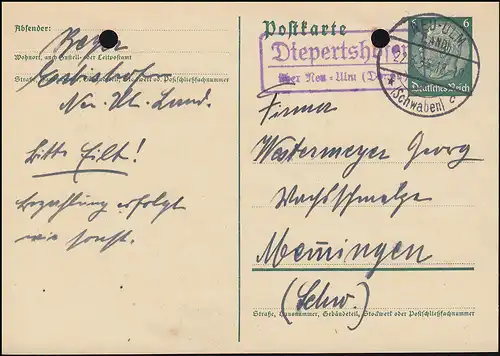 Absender:
Beyer
Wohnort, auch Zustell- oder Leitpostamt
Straße, Hausnummer, Gebäudeteil, Stockwerk oder Postschließfachnummer
Neu-Ulm Land.
Bitte Eilt!
Bezahlung erfolgt
wie sonst.
Postkarte
Tiepertshofen
über Neu-Ulm (Donau)
NEU-ULM
(LAND)
(Schwaben)
6
Deutsches Reich
Firma
Westermeyer Georg
Wachsschmelze
Memmingen
(Schw.)
Straße, Hausnummer, Gebäudeteil, Stockwerk oder Postschließfachnummer